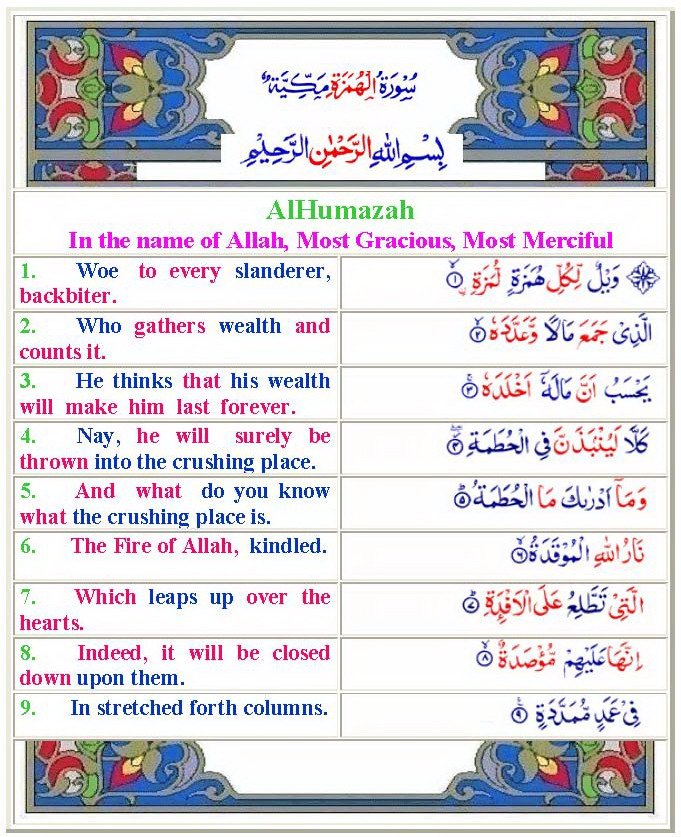 سُوْرَةُ الْهُمَزَةِ مَكِّيَّةٌ
بِسْمِ اللهِ الرَّحْمٰنِ الرَّحِيْمِ
AlHumazah
In the name of Allah, Most Gracious, Most Merciful
1. Woe to every slanderer,
backbiter.
وَيْلٌ لِّكُلِّ هُمَزَةٍ لُّمَزَةٍ ۙ ١
2. Who gathers wealth and
counts it.
الَّذِىْ جَمَعَ مَالًا وَّعَدَّدَهٗ ۙ ٢
3. He thinks that his wealth
will make him last forever.
يَحْسَبُ اَنَّ مَالَهٗۤ اَخْلَدَهٗ ۚ ٣
4. Nay, he will surely be
thrown into the crushing place.
كَلَّا لَيُنْۢبَذَنَّ فِى الْحُطَمَةِ ۖ ٤
5. And what do you know
what the crushing place is.
وَمَاۤ اَدْرٰىكَ مَا الْحُطَمَةُ ؕ ٥
6. The Fire of Allah, kindled.
نَارُ اللهِ الْمُوْقَدَةُ ۙ ٦
7. Which leaps up over the
hearts.
الَّتِىْ تَطَّلِعُ عَلَى الْاَفْـِٕدَةِ ؕ ٧
8. Indeed, it will be closed
down upon them.
اِنَّهَا عَلَيْهِمْ مُّؤْصَدَةٌ ۙ ٨
9. In stretched forth columns.
فِىْ عَمَدٍ مُّمَدَّدَةٍ ٩